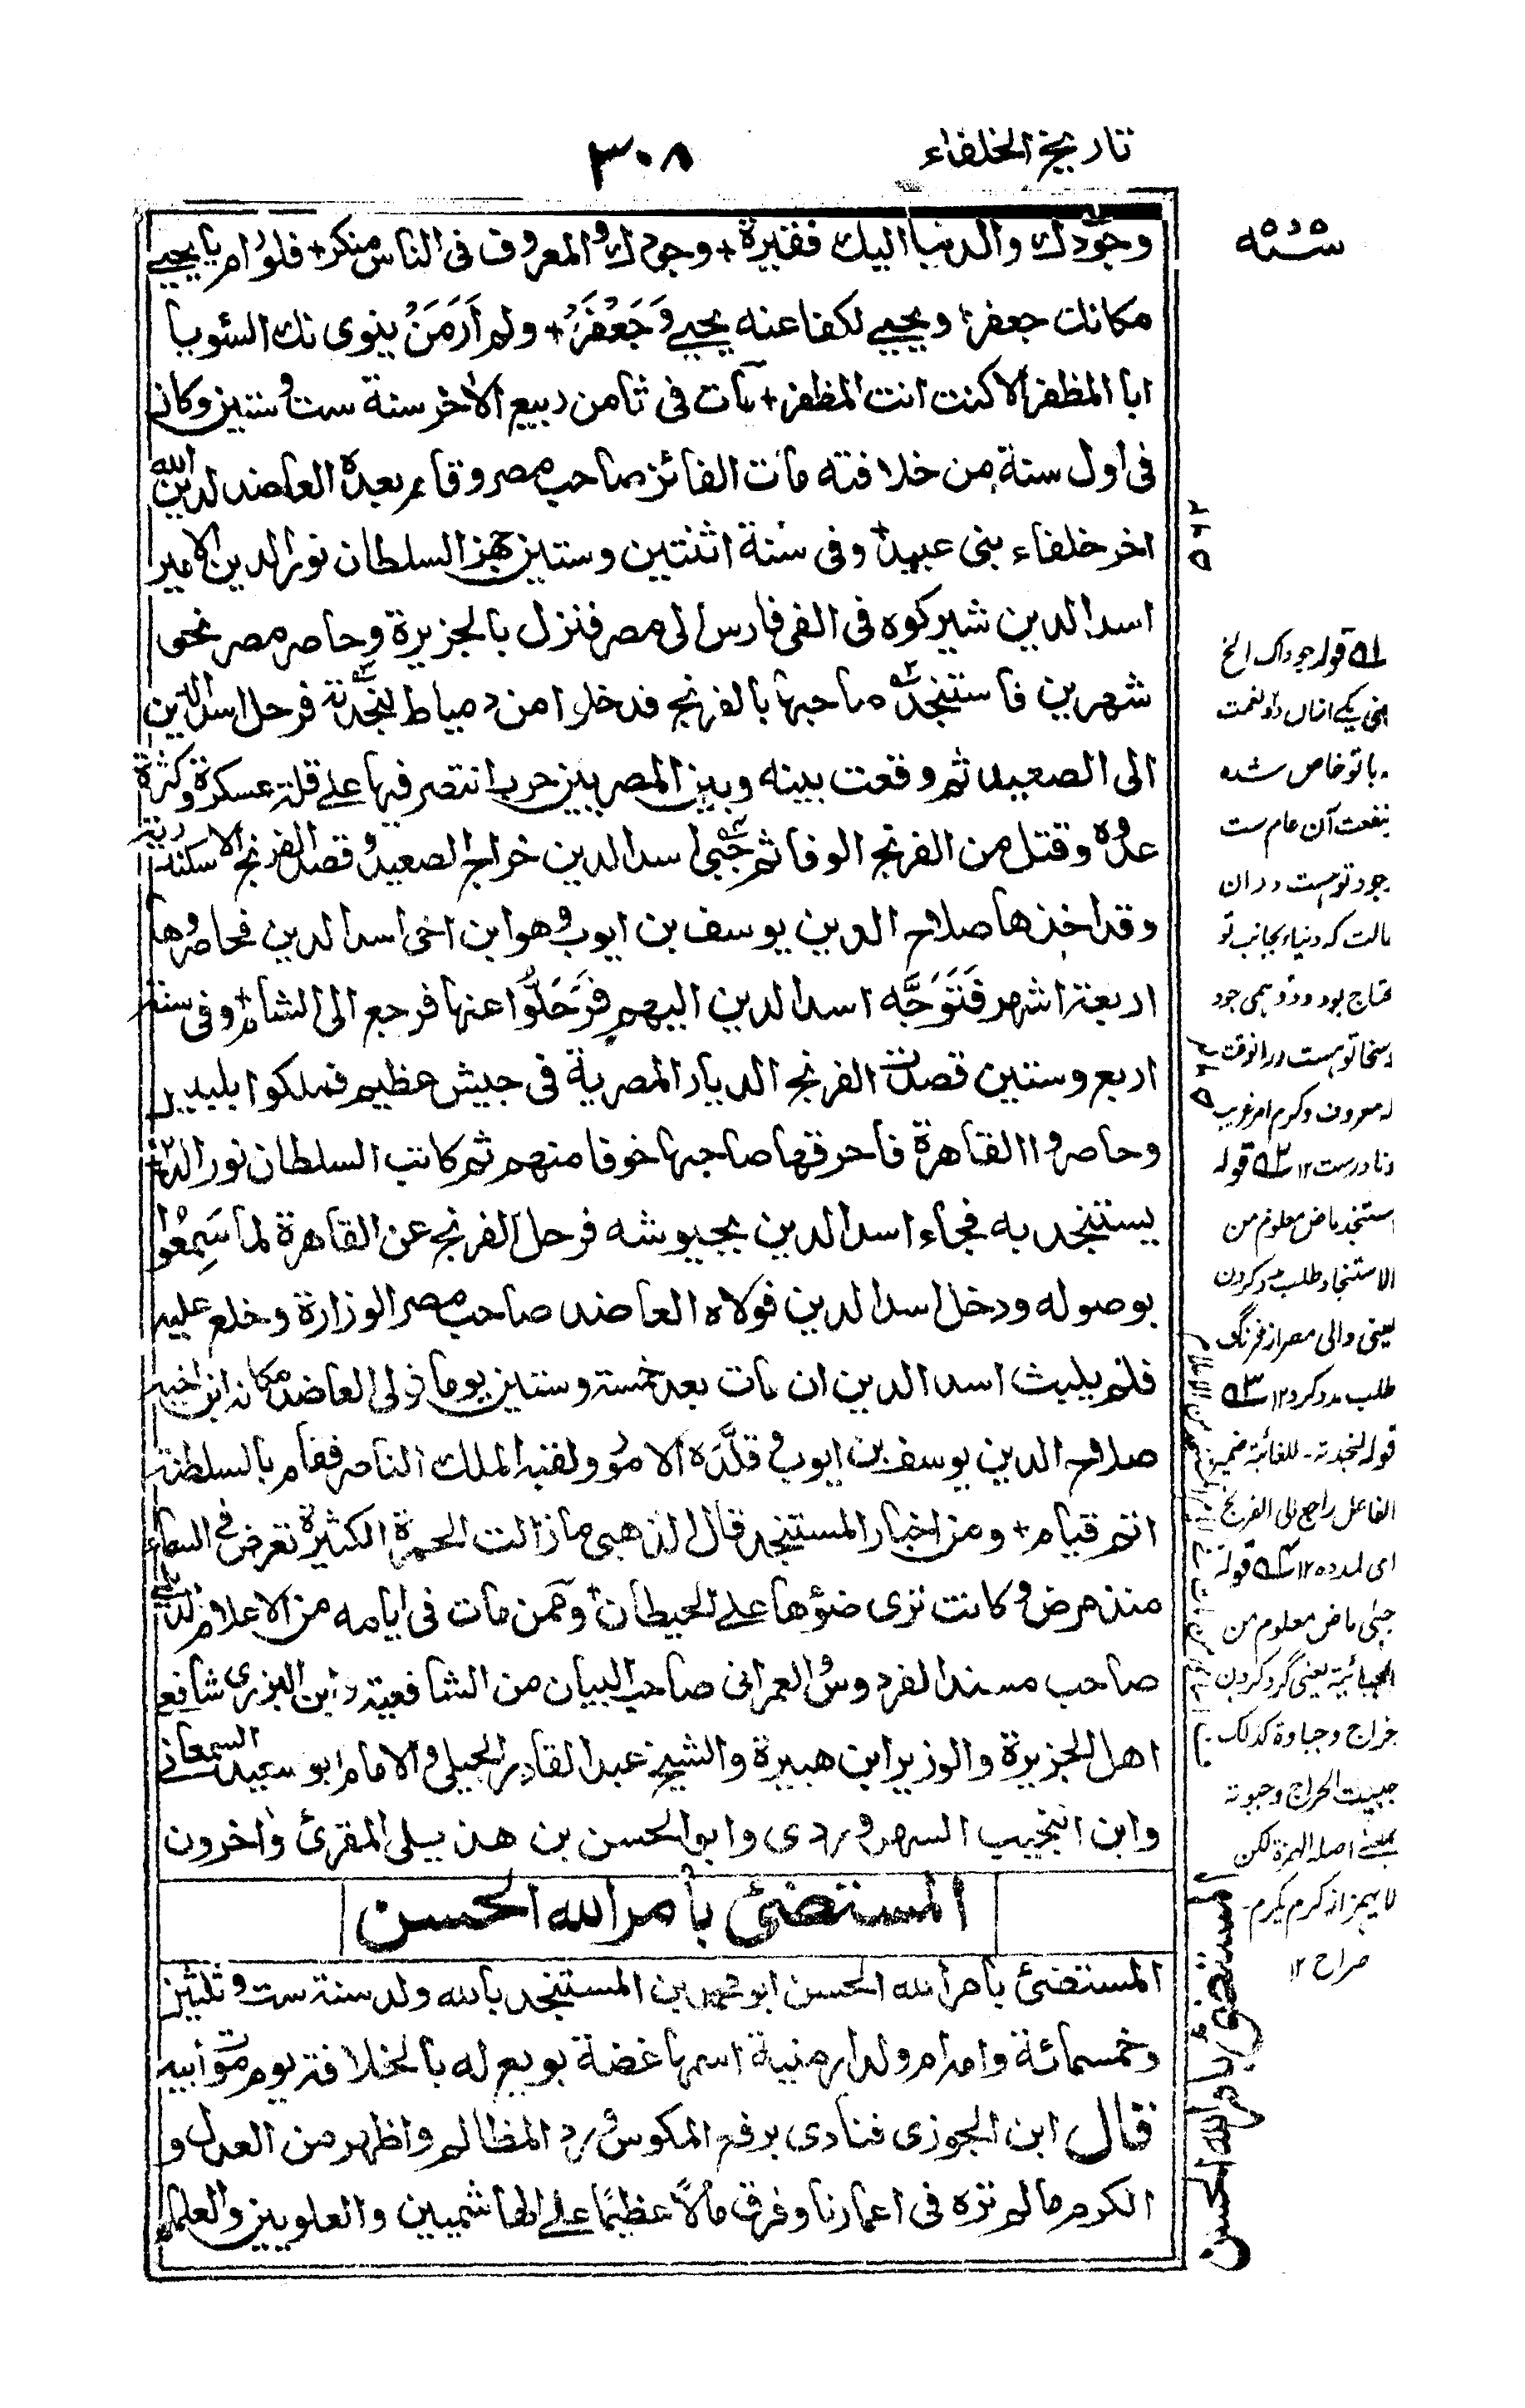 تاريخ الخلفاء
٣٠٨
وجودك والدنيا اليك فقيرة + وجودك والمعروف في الناس منكر + فلو رام يا يحيى
مكانك جعفر ؛ ويحيى لكفا عنه يحيى وجعفر + ولم ار من ينوى لك السوء يا
ابا المظفر الا كنت انت المظفر + مات في ثامن ربيع الآخر سنة ست وستين وكان
في اول سنة من خلافته مات الفائز صاحب مصر وقام بعده العاضد لدين الله
اخر خلفاء بني عبيد + وفي سنة اثنتين وستين جهز السلطان نور الدين الامير
اسد الدين شيركوه في الفي فارس الى مصر فنزل بالجزيرة وحاصر مصر نحو
شهرين فاستنجد صاحبها بالفرنج فدخلوا من دمياط لنجدته فرحل اسد الدين
الى الصعيد ثم وقعت بينه وبين المصريين حرب انتصر فيها على قلة عسكره وكثرة
عدوه وقتل من الفرنج الوفا ثم جبى اسد الدين خراج الصعيد وقصد الفرنج الاسكندرية
وقد اخذها صلاح الدين يوسف بن ايوب وهو ابن اخي اسد الدين فحاصروها
اربعة اشهر فتوجه اسد الدين اليهم فرحلوا عنها فرجع الى الشام + وفي سنة
اربع وستين قصدت الفرنج الديار المصرية في جيش عظيم فملكوا بلبيس
وحاصروا القاهرة فاحرقها صاحبها خوفا منهم ثم كاتب السلطان نور الدين
يستنجد به فجاء اسد الدين بجيوشه فرحل الفرنج عن القاهرة لما سمعوا
بوصوله ودخل اسد الدين فولاه العاضد صاحب مصر الوزارة وخلع عليه
فلم يلبث اسد الدين ان مات بعد خمسة وستين يوما فولى العاضد مكانه ابن اخيه
صلاح الدين يوسف بن ايوب وقلده الامور ولقبه الملك الناصر فقام بالسلطنة
اتم قيام + ومن اخبار المستنجد قال الذهبي ما زالت الحمرة الكثيرة تعرض في السماء
منذ مرض وكانت ترى ضوؤها على الحيطان + وممن مات في ايامه من الاعلام الديلمي
صاحب مسند الفردوس والعمراني صاحب البيان من الشافعية وابن البزري شافعي
اهل الجزيرة والوزير ابن هبيرة والشيخ عبد القادر الجيلي والامام ابو سعيد السمعاني
وابو النجيب السهروردي وابو الحسن بن هذيل المقرئ واخرون
المستضئ بامر الله الحسن
المستضئ بامر الله الحسن ابو محمد بن المستنجد بالله ولد سنة ست وثلثين
وخمسمائة وامه ام ولد ارمنية اسمها غضة بويع له بالخلافة يوم موت ابيه
قال ابن الجوزى فنادى برفع المكوس ورد المظالم واظهر من العدل و
الكرم ما لم نره في اعمارنا وفرق مالا عظيما على الهاشميين والعلويين والعلماء
٥٦٢
٥٦٤
قوله جودك الخ
با تو خاص شده
منفعت آن عام ست
جود تو هست در ان
حالت كه دنيا بجانب تو
محتاج بود
له معروف وكرم امر غريب
ونادرست ١٢ قوله
استنجد ماض معلوم من
الاستنجاد طلب مدد كردن
يعنى والى مصر از فرنگ
طلب مدد كرد ١٢
قوله لنجدته
الفاعل راجع الى الفرنج
اى لمدده ١٢ قوله
جبى ماض معلوم من
الجباية يعنى گرد كردن
خراج وجباوة كذلك
جبيت الخراج وجبوته
اصله الهمزة لكن
لا يهمز از كرم يكرم
صراح ١٢
المستضئ بامر الله الحسن